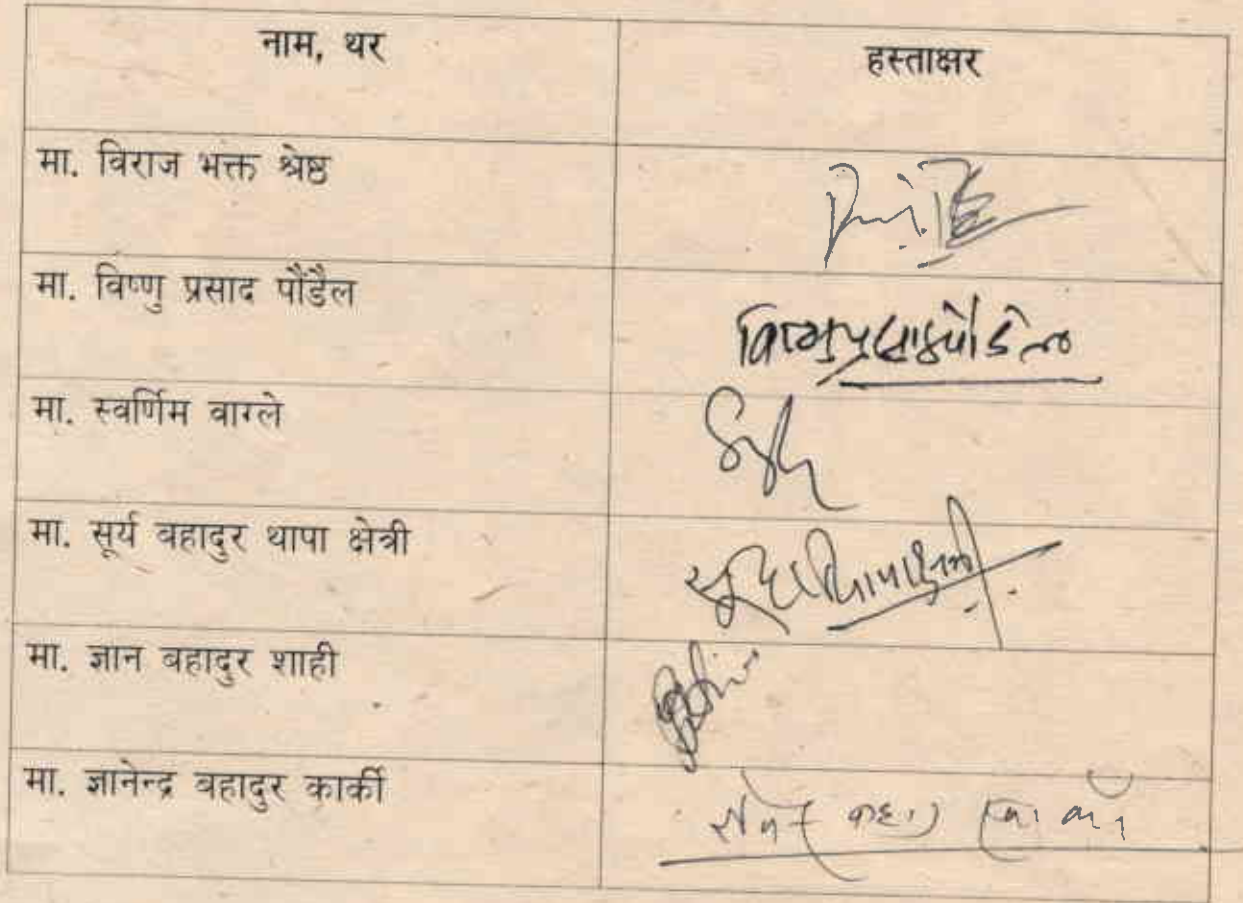 नाम, थर
हस्ताक्षर
मा. विराज भक्त श्रेष्ठ
मा. विष्णु प्रसाद पौडैल
विष्णुप्रसाद पौडेल
मा. स्वर्णिम वाग्ले
मा. सूर्य बहादुर थापा क्षेत्री
मा. ज्ञान बहादुर शाही
मा. ज्ञानेन्द्र बहादुर कार्की